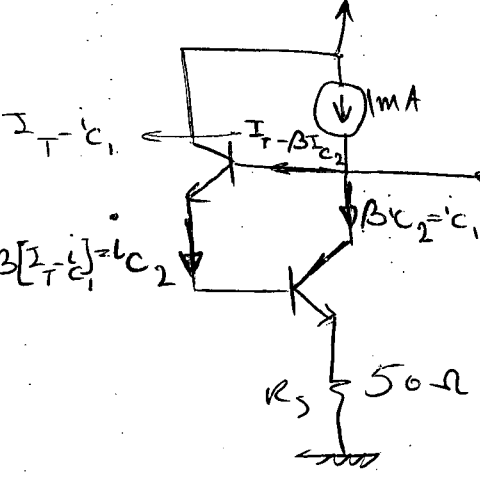 1mA
I_T - i_C1
I_T - βI_C2
βi_C2 = i_C1
β[I_T - i_C1] = i_C2
R_S 50 Ω